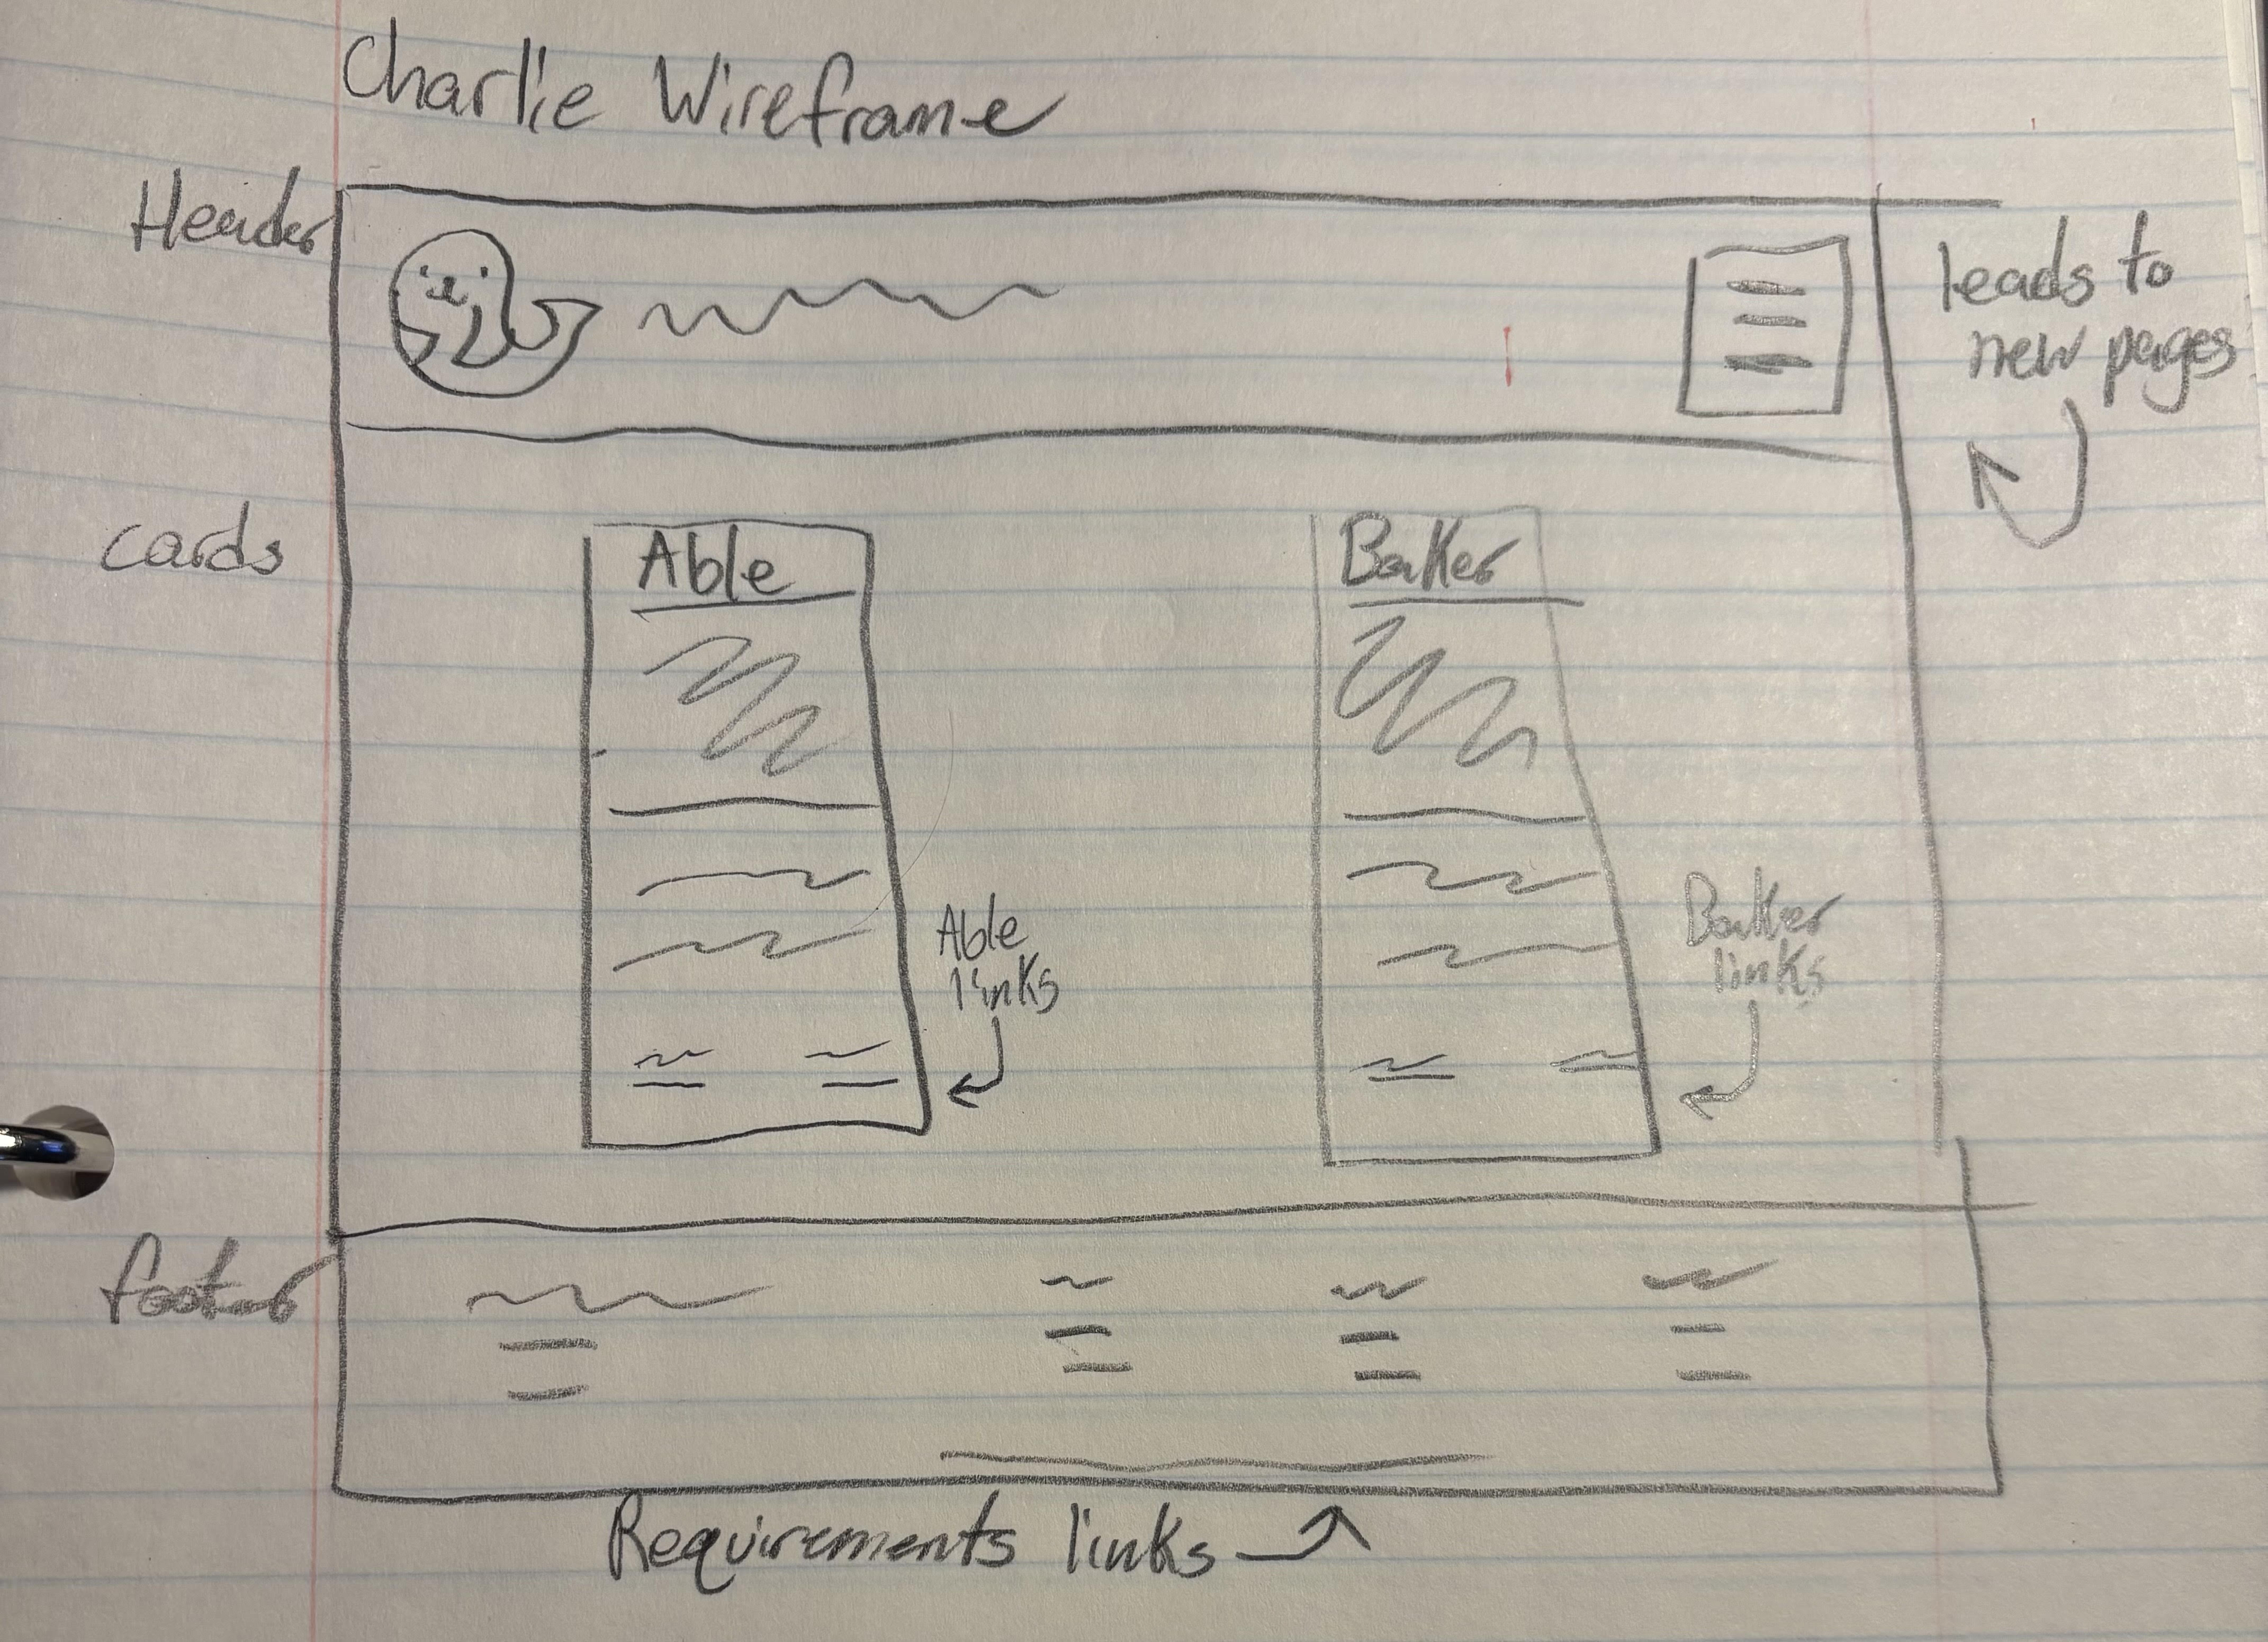 Charlie Wireframe
Header
leads to
new pages
cards
Able
Baker
Able
links
Baker
links
footer
Requirements links